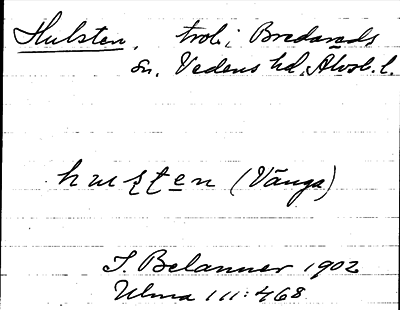 Hulsten, trol. i Bredareds
sn. Vedens hd, Älvsb. l.
huʂʈen (Vånga)
J. Belanner 1902
Ulma 111:468